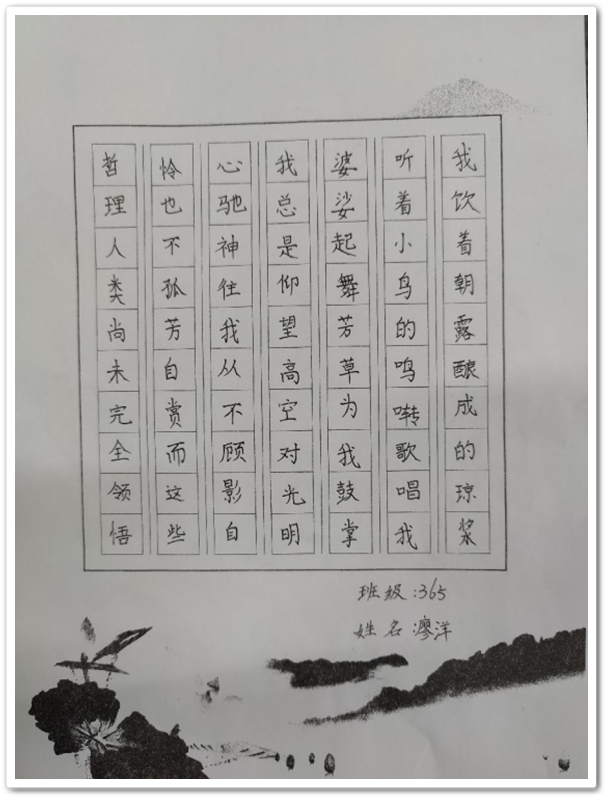 我饮着朝露酿成的琼浆
听着小鸟的鸣啭歌唱我
婆娑起舞芳草为我鼓掌
我总是仰望高空对光明
心驰神往我从不顾影自
怜也不孤芳自赏而这些
哲理人类尚未完全领悟
班级:365
姓名:廖洋